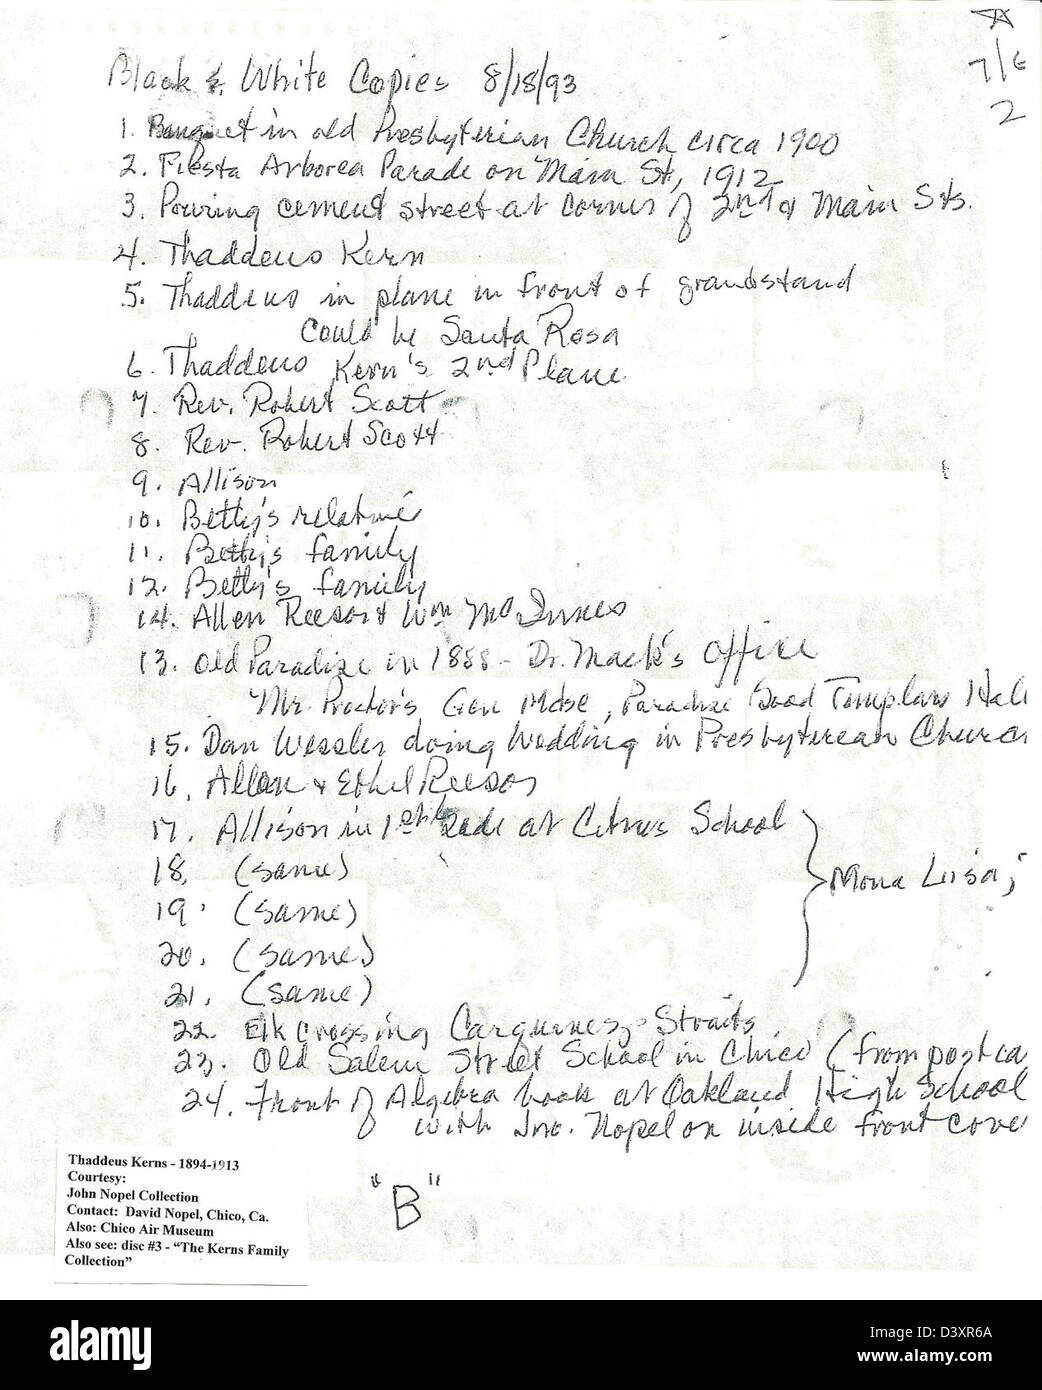 7/6
2
Black & White Copies 8/18/93
1. Banquet in old Presbyterian Church circa 1900
2. Fiesta Arborea Parade on Main St, 1912
3. Pouring cement street at corner of 2nd & Main Sts.
4. Thaddeus Kern
5. Thaddeus in plane in front of grandstand
Could be Santa Rosa
6. Thaddeus Kern's 2nd Plane
7. Rev. Robert Scott
8. Rev. Robert Scott
9. Allison
10. Betty's relatives
11. Betty's family
12. Betty's family
14. Allen Reesor & Wm McInnes
13. Old Paradise in 1888 - Dr. Mack's Office
Mr. Proctor's Gen Mdse, Paradise Good Templars Hall
15. Dan Wessler doing Wedding in Presbyterean Churc
16. Allan & Ethel Reesor
17. Allison in 1st Grade at Citrus School
18. (same)
19. (same)
20. (same)
21. (same)
Mona Lisa;
22. Elk crossing Carquinez Straits
23. Old Salem Street School in Chico (from post ca
24. Front of Algebra book at Oakland High School
with Jno. Nopel on inside front cove
"B"
Thaddeus Kerns - 1894-1913
Courtesy:
John Nopel Collection
Contact: David Nopel, Chico, Ca.
Also: Chico Air Museum
Also see: disc #3 - “The Kerns Family
Collection”
alamy
Image ID: D3XR6A
www.alamy.com